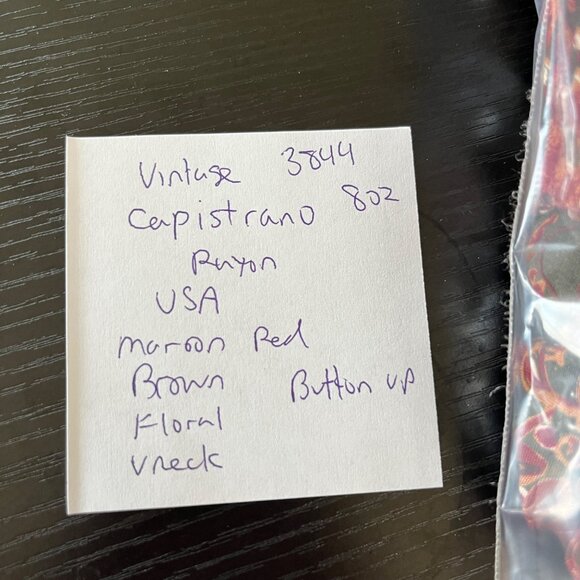 Vintage 3844
Capistrano 802
Rayon
USA
Maroon Red
Brown Button up
Floral
Vneck